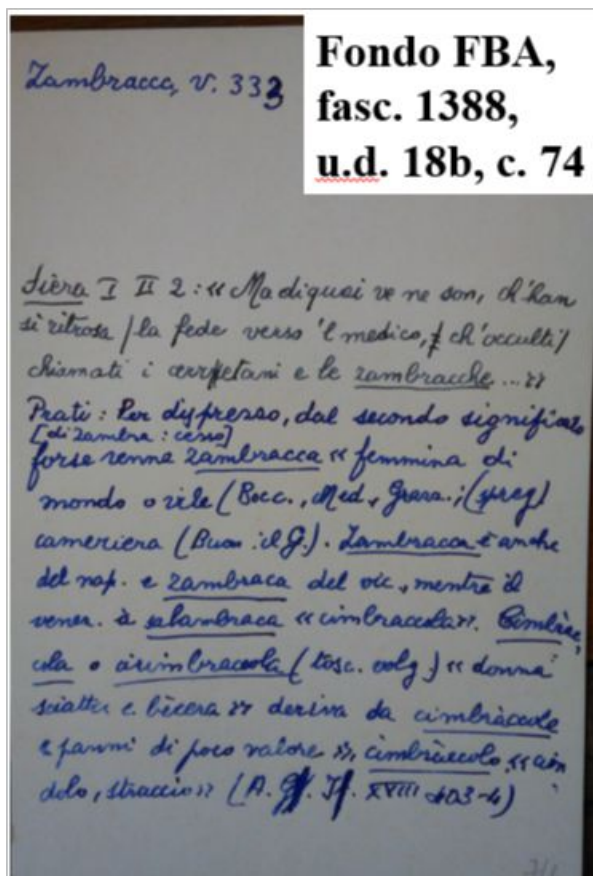 Zambracca, v. 333
Fondo FBA,
fasc. 1388,
u.d. 18b, c. 74
Fièra I II 2: «Ma di quai ve ne son, ch'han
sì ritrosa / la fede verso 'l medico, ch'occulti /
chiamati i cerretani e le zambracche ...»
Prati: Per dispresso, dal secondo significato
[di zambra: cesso]
forse venne zambracca «femmina di
mondo o vile (Bocc., Med., Grara.; (spreg)
cameriera (Buon. il G.). Zambracca è anche
del nap. e zambraca del vic., mentre il
venez. à salambraca «cimbraccola». Cimbràc,
cola o cirimbraccola (tosc. volg.) «donna
sciatta e bècera» deriva da cimbràccole
e panni di poco valore», cimbràccolo, «cin
dolo, straccio» (A. G. I. XVIII 403-4)